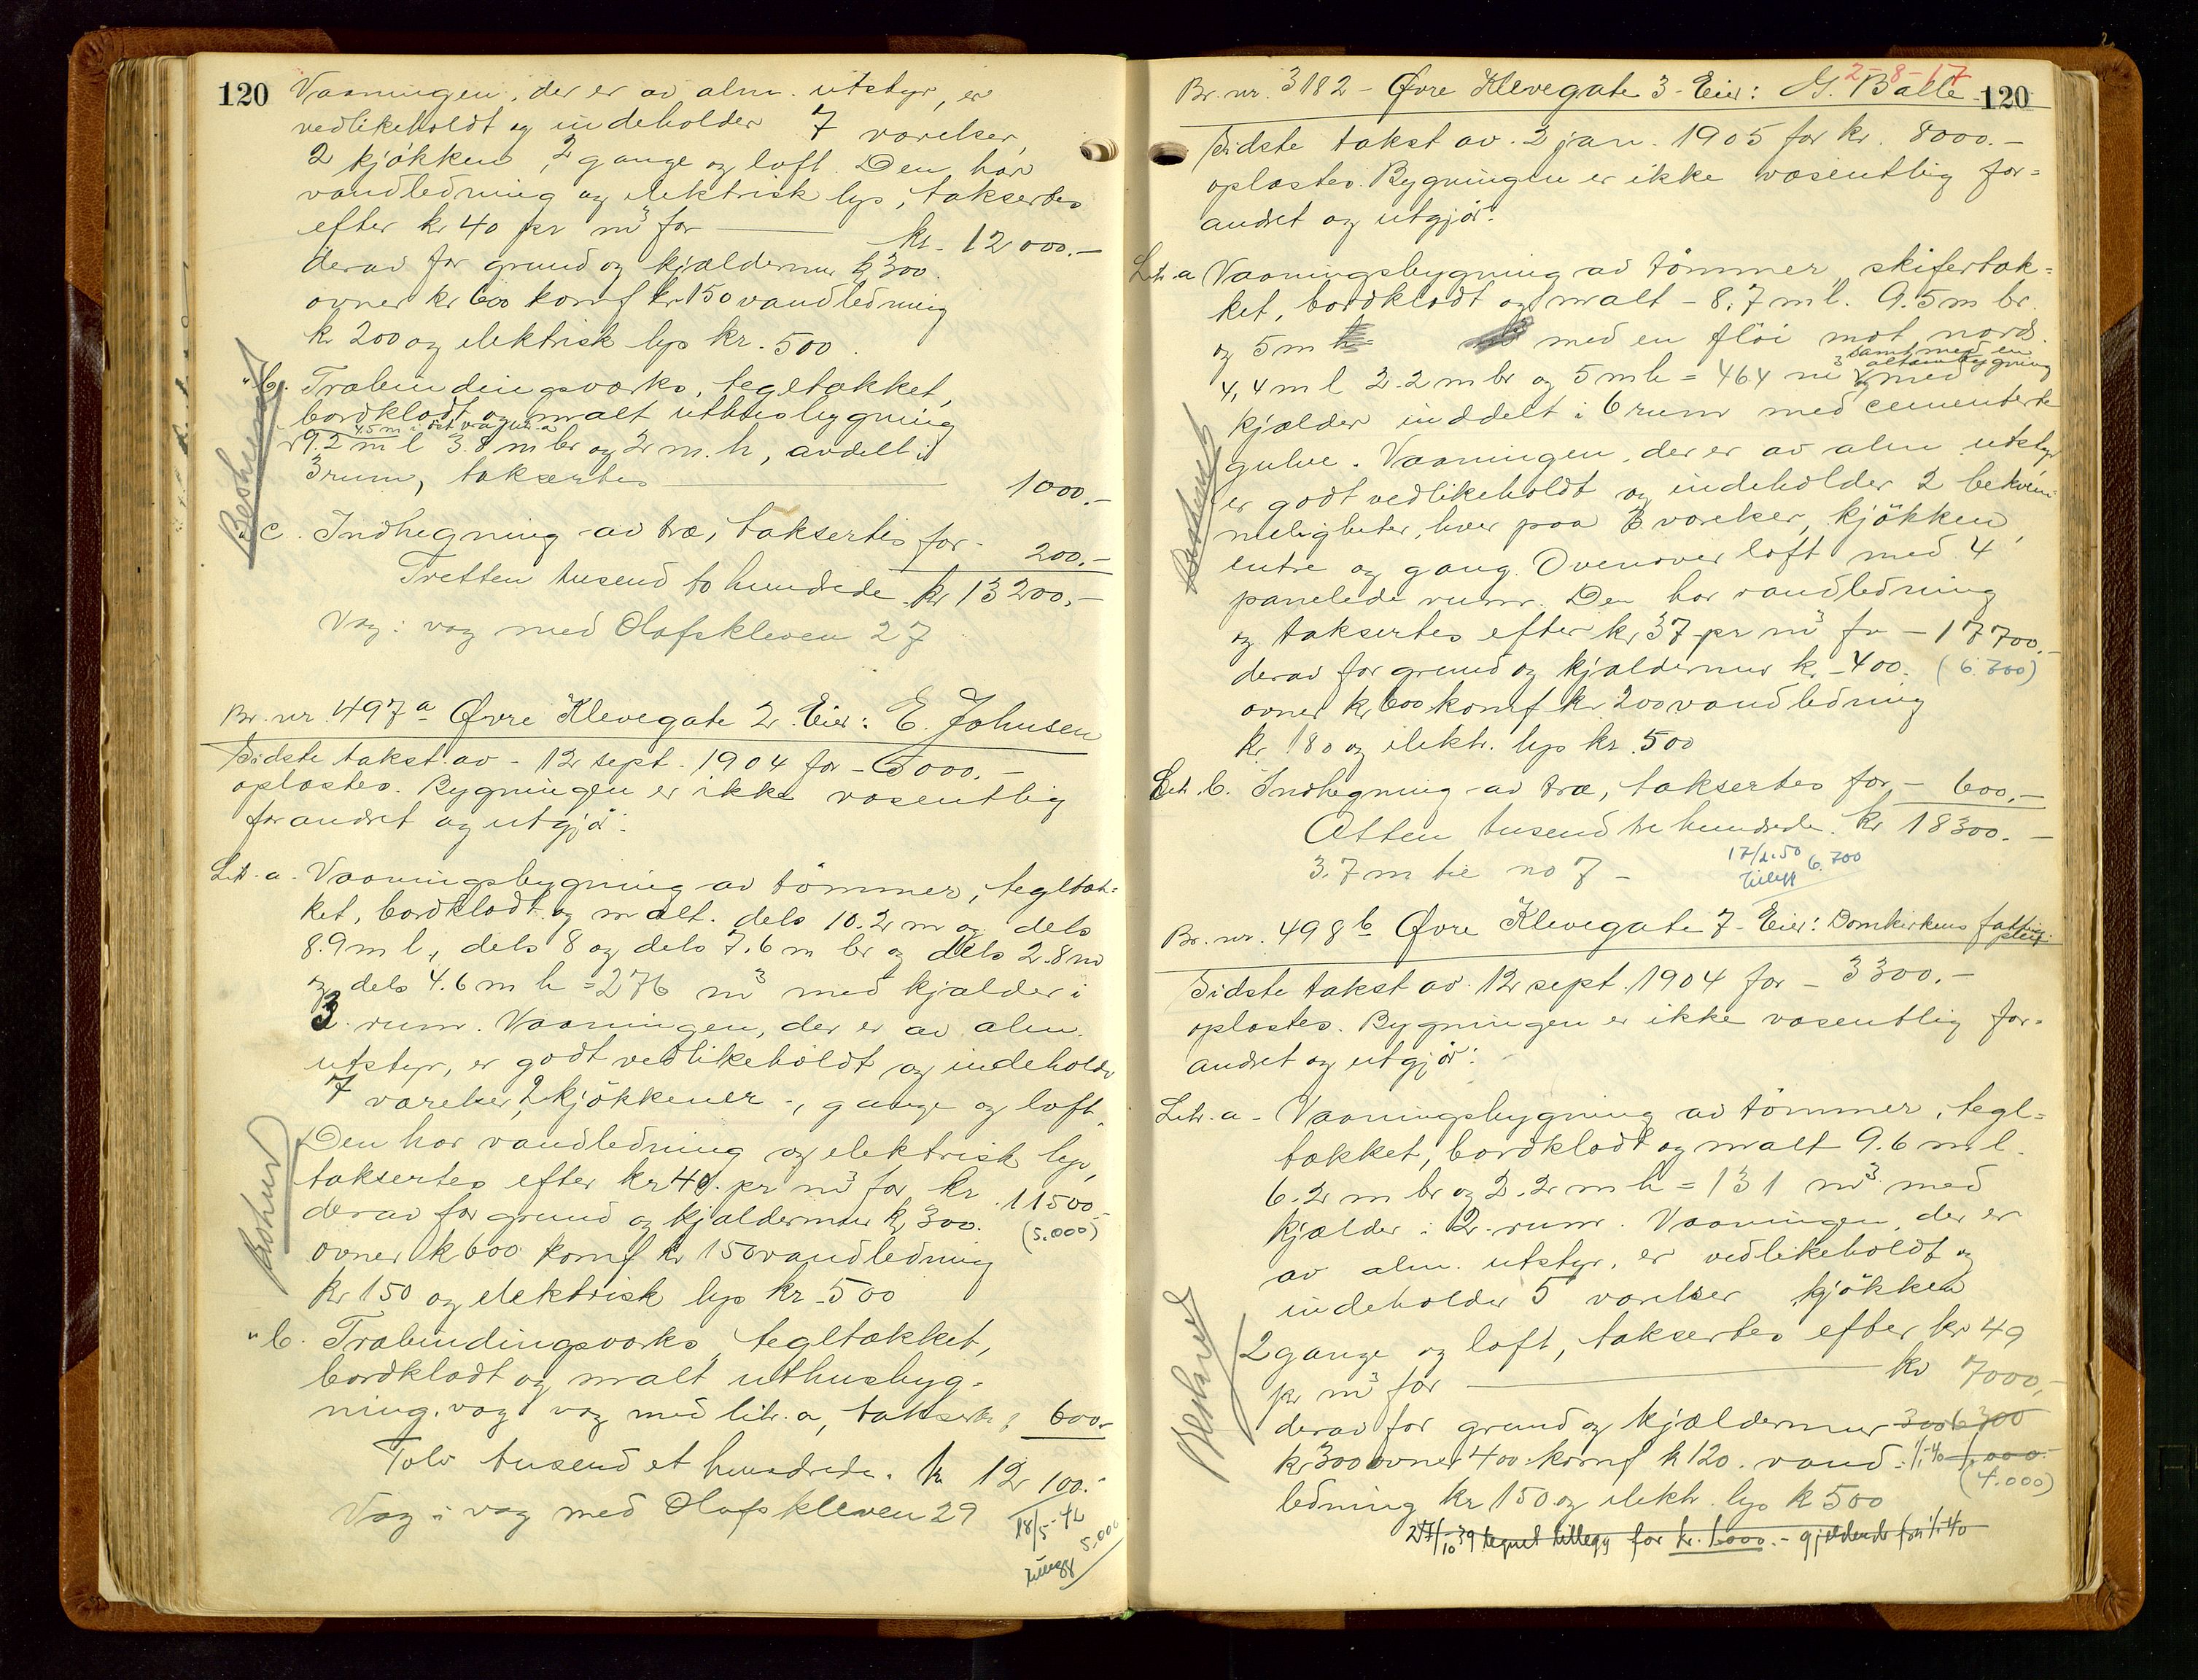 120
Vaaningen, der er av alm. utstyr, er
vedlikeholdt og indeholder 7 værelser,
2 kjökken, 2 gange og loft. Den har
vandledning og elektrisk lys, taksertes
efter kr 40 pr m³ for kr. 12000.–
derav for grund og kjældermur kr 300.
ovner kr 600 komf kr 150 vandledning
kr 200 og elektrisk lys kr. 500.
" b. Træbindingsværks, tegltækket,
bordklædt og malt uthusbygning
9.2 m l 3.8 m br og 2 m. h, avdelt i
3 rum, takseres 1000.–
" c. Indhegning av træ, taksertes for - 200.–
Tretten tusend to hundrede kr 13200.–
Væg i væg med Olafskleven 27
Br. nr. 497a Øvre Klevegate 2. Eier: E. Johnsen
Sidste takst av - 12 sept. 1904 for - 6000.–
oplæstes. Bygningen er ikke væsentlig
forandret og utgjör:
Litr. a. Vaaningsbygning av tömmer, tegltæk-
ket, bordklædt og malt. dels 10.2 m og dels
8.9 m l., dels 8 og dels 7.6 m br og dels 2.8 m
og dels 4.6 m h = 276 m³ med kjælder i
3 rum. Vaaningen, der er av alm.
utstyr, er godt vedlikeholdt og indeholder
7 værelser, 2 kjökkener -, gange og loft.
Den har vandledning og elektrisk lys,
taksertes efter kr 40. pr m³ for kr. 11500.–
derav for grund og kjældermur kr 300. (5.000)
ovner k 600 komf kr 150 vandledning
kr 150 og elektrisk lys kr. 500
" b. Træbindingsværks, tegltækket,
bordklædt og malt uthusbyg-
ning, væg i væg med litr. a, takserts 600.–
Tolv tusend et hundrede. kr 12100.–
Væg i væg med Olafskleven 29
18/5-42
Tillegg 5.000
2-8-17
Br. nr. 3182 - Øvre Klevegate 3 - Eier: G. Balle 120
Sidste takst av. 2 jan. 1905 for kr. 8000.–
oplæstes. Bygningen er ikke væsentlig for-
andret og utgjör:
Litr. a Vaaningsbygning av tömmer, skifertæk-
ket, bordklædt og malt - 8.7 m l. 9.5 m br.
og 5 m h med en flöi mot nord.
samt med en altanbygning
4,4 m l 2.2 m br og 5 m h = 464 m³ og med
kjælder inddelt i 6 rum med cementerte
gulve. Vaaningen, der er av alm utstyr
er godt vedlikeholdt og indeholder 2 bekvem-
meligheter, hver paa 3 værelser, kjökken,
entre og gang. Ovenover loft med 4
panelede rum. Den har vandledning
og taksertes efter kr 37 pr m³ for - 17700.–
derav for grund og kjældermur kr - 400. (6.700)
ovner kr 600 komf kr 200 vandledning
kr 180 og elektr. lys kr. 500
Litr. b. Indhegning av træ, taksertes for - 600.–
Atten tusend tre hundrede. kr 18300.–
3.7 m til no 7 -
17/2.50
Tillegg 6.700
Br. nr. 498b Øvre Klevegate 7 - Eier: Domkirkens fattigpleie
Sidste takst av 12 sept. 1904 for - 3300.–
oplæstes. Bygningen er ikke væsentlig for-
andret og utgjör:
Litr. a - Vaaningsbygning av tömmer, tegl-
tækket, bordklædt og malt 9.6 m l.
6.2 m br og 2.2 m h = 131 m³ med
kjælder i 2 rum. Vaaningen, der er
av alm. utstyr, er vedlikeholdt og
indeholder 5 værelser kjökken
2 gange og loft, taksertes efter kr 49
pr m³ for kr 7000.–
derav for grund og kjældermur 6300
kr 300 ovner 400 komf k 120. vand- 1/1-40 1.000
ledning kr 150 og elektr. lys k 500 (7.000)
27/10-39 tegnet tillegg for kr. 1000.- gjeldende fra 1/1-40